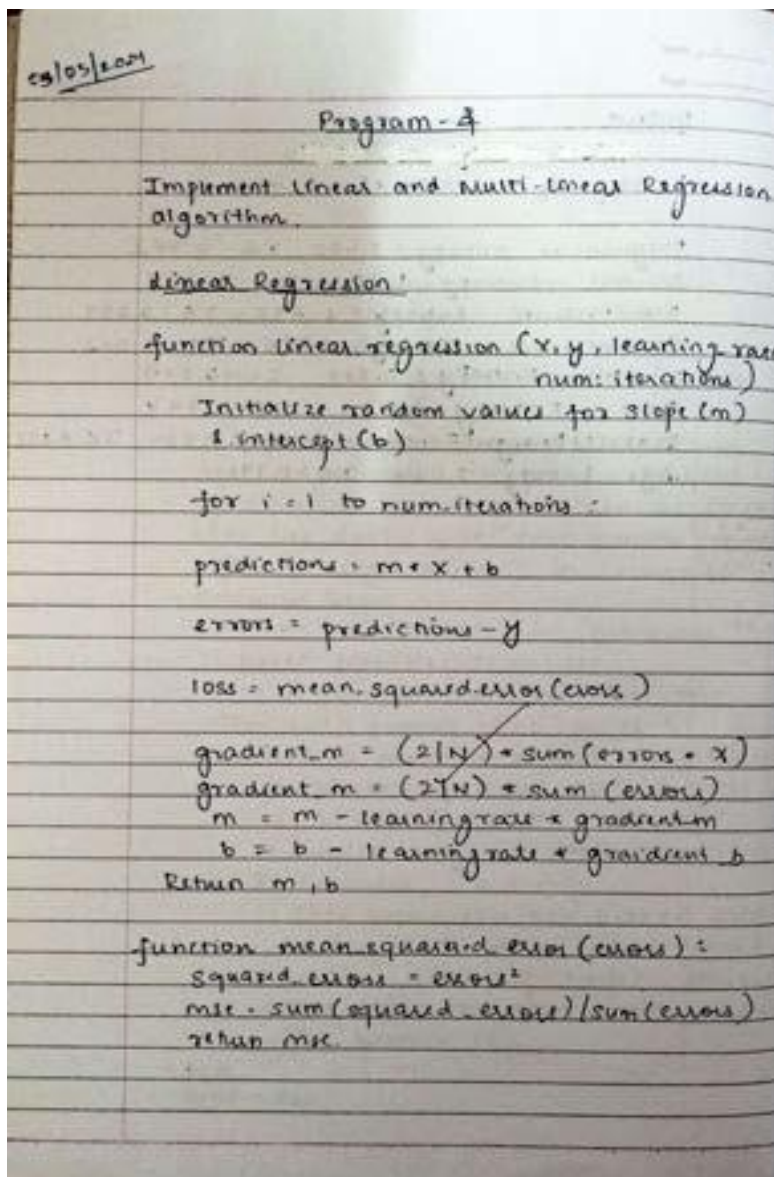 Program - 4
Implement Linear and Multi-linear Regression
algorithm.
Linear Regression:
function linear regression (x, y, learning rate
num: iterations)
Initialize random values for slope (m)
& intercept (b)
for i = 1 to num. iterations :
predictions = m * x + b
errors = predictions - y
loss = mean. squared. error (erors)
gradient_m = (2/N) * sum (errors * x)
gradient_m = (2/N) * sum (errors)
m = m - learningrate * gradient m
b = b - learningrate * graidrent b
Return m, b
function mean squarared error (errors) :
squared. errors = errors²
mse = sum (squared - errors) / sum (errors)
return mse.